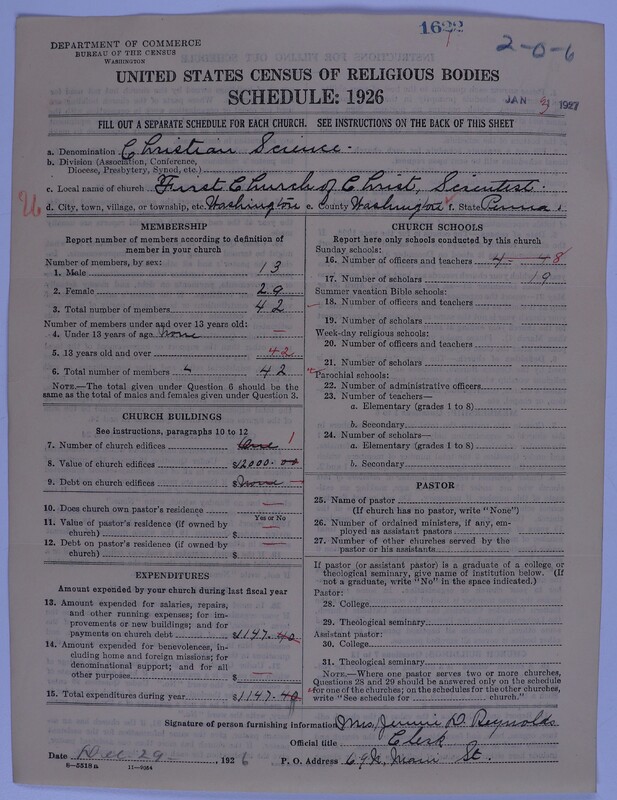 1622
2-0-6
DEPARTMENT OF COMMERCE
BUREAU OF THE CENSUS
WASHINGTON
UNITED STATES CENSUS OF RELIGIOUS BODIES
SCHEDULE: 1926
JAN 3 1927
FILL OUT A SEPARATE SCHEDULE FOR EACH CHURCH. SEE INSTRUCTIONS ON THE BACK OF THIS SHEET
a. Denomination Christian Science.
b. Division (Association, Conference,
Diocese, Presbytery, Synod, etc.)
c. Local name of church First Church of Christ, Scientist.
d. City, town, village, or township, etc. Washington e. County Washington f. State Penna.
MEMBERSHIP
Report number of members according to definition of
member in your church
Number of members, by sex:
1. Male 13
2. Female 29
3. Total number of members 42
Number of members under and over 13 years old:
4. Under 13 years of age None —
5. 13 years old and over 42
6. Total number of members 42
NOTE.—The total given under Question 6 should be the
same as the total of males and females given under Question 3.
CHURCH BUILDINGS
See instructions, paragraphs 10 to 12
7. Number of church edifices One 1
8. Value of church edifices $12000.00
9. Debt on church edifices $None —
10. Does church own pastor's residence —
Yes or No
11. Value of pastor's residence (if owned by
church) $ —
12. Debt on pastor's residence (if owned by
church) $ —
EXPENDITURES
Amount expended by your church during last fiscal year
13. Amount expended for salaries, repairs,
and other running expenses; for im-
provements or new buildings; and for
payments on church debt $1147.40
14. Amount expended for benevolences, in-
cluding home and foreign missions; for
denominational support; and for all
other purposes $ —
15. Total expenditures during year $1147.40
CHURCH SCHOOLS
Report here only schools conducted by this church
Sunday schools:
16. Number of officers and teachers 4
17. Number of scholars 19
Summer vacation Bible schools:
18. Number of officers and teachers
19. Number of scholars
Week-day religious schools:
20. Number of officers and teachers
21. Number of scholars
Parochial schools:
22. Number of administrative officers
23. Number of teachers—
a. Elementary (grades 1 to 8)
b. Secondary
24. Number of scholars—
a. Elementary (grades 1 to 8)
b. Secondary
PASTOR
25. Name of pastor
(If church has no pastor, write "None")
26. Number of ordained ministers, if any, em-
ployed as assistant pastors
27. Number of other churches served by the
pastor or his assistants
If pastor (or assistant pastor) is a graduate of a college or
theological seminary, give name of institution below. (If
not a graduate, write "No" in the space indicated.)
Pastor:
28. College
29. Theological seminary
Assistant pastor:
30. College
31. Theological seminary
NOTE.—Where one pastor serves two or more churches,
Questions 28 and 29 should be answered only on the schedule
for one of the churches; on the schedules for the other churches,
write "See schedule for church."
Signature of person furnishing information Mrs. Jennie D. Reynolds
Official title Clerk
Date Dec. 29 1926 P. O. Address 69 N. Main St.
8-5518a 11-9064